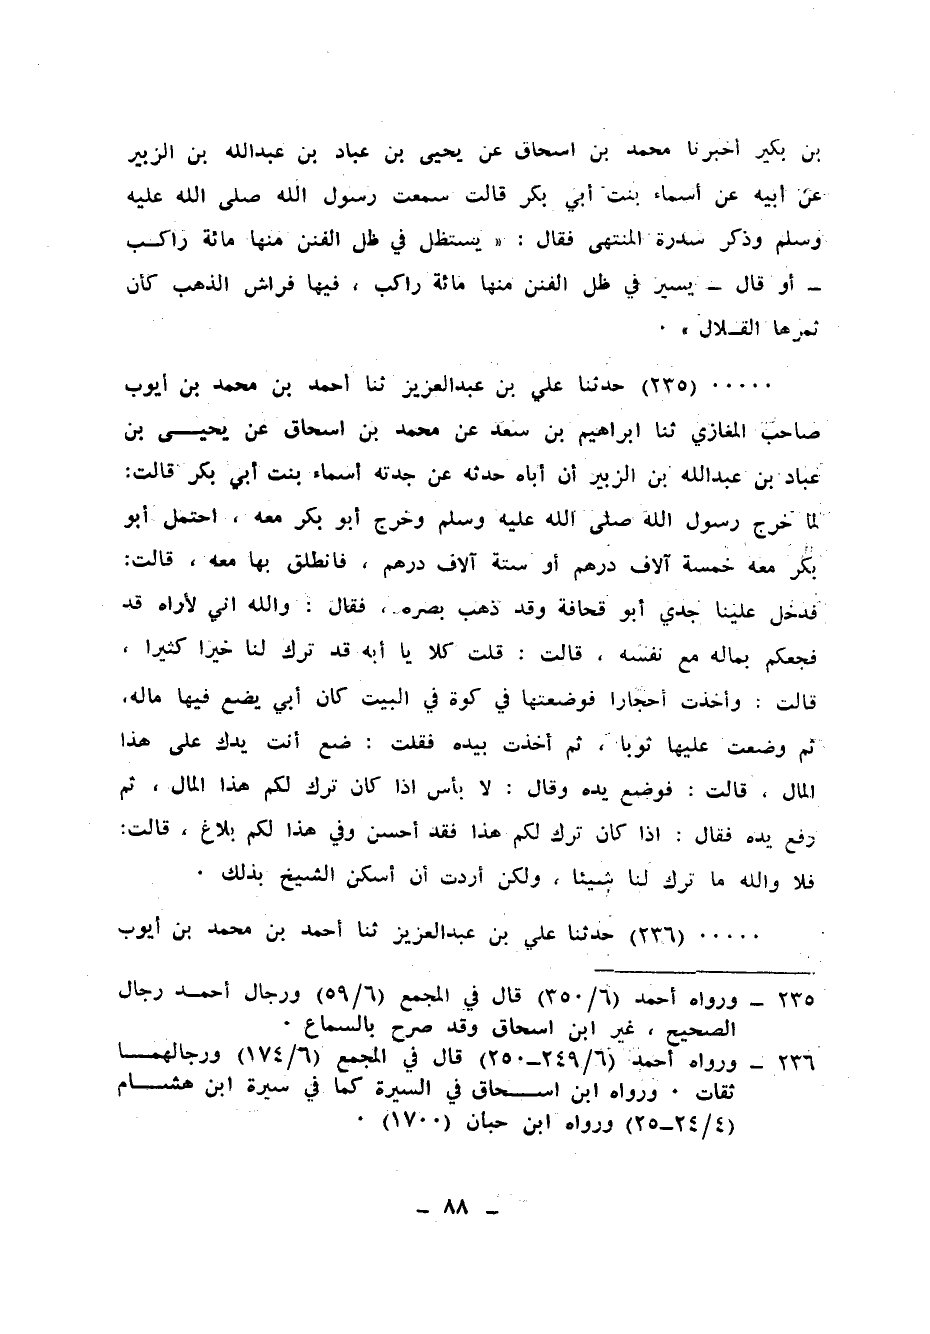 بن بكير أخبرنا محمد بن اسحاق عن يحيى بن عباد بن عبدالله بن الزبير
عن أبيه عن أسماء بنت أبي بكر قالت سمعت رسول الله صلى الله عليه
وسلم وذكر سدرة المنتهى فقال : « يستظل في ظل الفنن منها مائة راكب
ـ أو قال ـ يسير في ظل الفنن منها مائة راكب ، فيها فراش الذهب كأن
ثمرها القلال » ٠
٠٠٠٠٠ (٢٣٥) حدثنا علي بن عبدالعزيز ثنا أحمد بن محمد بن أيوب
صاحب المغازي ثنا ابراهيم بن سعد عن محمد بن اسحاق عن يحيى بن
عباد بن عبدالله بن الزبير أن أباه حدثه عن جدته أسماء بنت أبي بكر قالت:
لما خرج رسول الله صلى الله عليه وسلم وخرج أبو بكر معه ، احتمل أبو
بكر معه خمسة آلاف درهم أو ستة آلاف درهم ، فانطلق بها معه ، قالت:
فدخل علينا جدي أبو قحافة وقد ذهب بصره ، فقال : والله اني لأراه قد
فجعكم بماله مع نفسه ، قالت : قلت كلا يا أبه قد ترك لنا خيرا كثيرا ،
قالت : وأخذت أحجارا فوضعتها في كوة في البيت كان أبي يضع فيها ماله،
ثم وضعت عليها ثوبا ، ثم أخذت بيده فقلت : ضع أنت يدك على هذا
المال ، قالت : فوضع يده وقال : لا بأس اذا كان ترك لكم هذا المال ، ثم
رفع يده فقال : اذا كان ترك لكم هذا فقد أحسن وفي هذا لكم بلاغ ، قالت:
فلا والله ما ترك لنا شيئا ، ولكن أردت أن أسكن الشيخ بذلك ٠
٠٠٠٠٠ (٢٣٦) حدثنا علي بن عبدالعزيز ثنا أحمد بن محمد بن أيوب
٢٣٥ ـ ورواه أحمد (٣٥٠/٦) قال في المجمع (٥٩/٦) ورجال أحمد رجال
الصحيح ، غير ابن اسحاق وقد صرح بالسماع ٠
٢٣٦ ـ ورواه أحمد (٢٤٩/٦ـ٢٥٠) قال في المجمع (١٧٤/٦) ورجالهما
ثقات ٠ ورواه ابن اسحاق في السيرة كما في سيرة ابن هشام
(٢٤/٤ـ٢٥) ورواه ابن حبان (١٧٠٠) ٠
ـ ٨٨ ـ